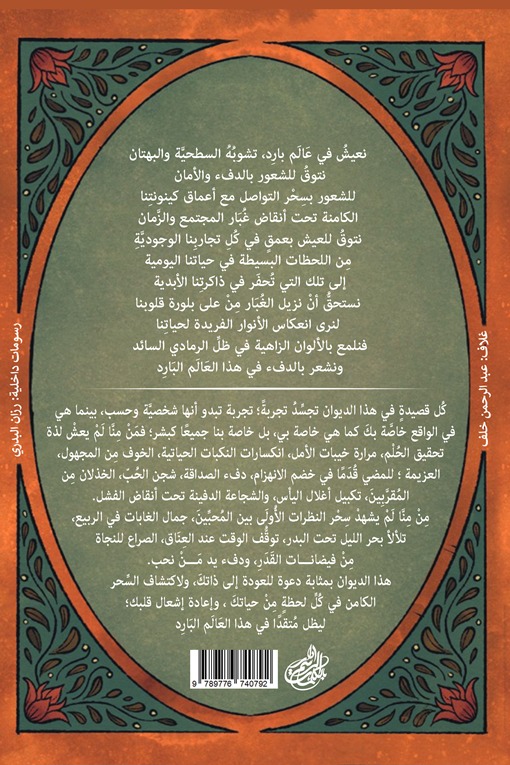 نعيشُ في عَالَم بارِد، تشوبُهُ السطحيَّة والبهتان
نتوقُ للشعور بالدفء والأمان
للشعور بسِحْر التواصل مع أعماق كينونتنا
الكامنة تحت أنقاض غُبَار المجتمع والزَّمان
نتوقُ للعيش بعمقٍ في كُلِ تجاربِنا الوجوديَّةِ
مِن اللحظات البسيطة في حياتنا اليومية
إلى تلك التي تُحفَر في ذاكرتنا الأبدية
نستحقُّ أنْ نزيل الغُبَار مِنْ على بلورة قلوبنا
لنرى انعكاس الأنوار الفريدة لحياتِنا
فنلمع بالألوان الزاهية في ظلِّ الرمادي السائد
ونشعر بالدفء في هذا العَالَم البَارِد
كُل قصيدةٍ في هذا الديوان تجسِّدُ تجربةً؛ تجربة تبدو أنها شخصيَّة وحسب، بينما هي
في الواقع خاصَّة بكَ كما هي خاصة بي، بل خاصة بنا جميعًا كبشر؛ فمَنْ مِنَّا لَمْ يعشْ لذة
تحقيق الحُلْم، مرارة خيبات الأمل، انكسارات النكبات الحياتية، الخوف مِن المجهول،
العزيمة ؛ للمضي قُدَمًا في خضم الانهزام، دفء الصداقة، شجن الحُبّ، الخذلان مِن
المُقرَّبينَ، تكبيل أغلال اليأس، والشجاعة الدفينة تحت أنقاض الفشل.
مِنْ مِنَّا لَمْ يشهدْ سِحْر النظرات الأُولَى بين المُحبِّينَ، جمال الغابات في الربيع،
تلألأ بحر الليل تحت البدر، توقُّف الوقت عند العِنَاق، الصراع للنجاة
مِنْ فيضانــات القَدَرِ، ودفء يد مَــنْ نحب.
هذا الديوان بمثابة دعوة للعودة إلى ذاتِكَ، ولاكتشاف السِّحر
الكامن في كُلِّ لحظةٍ مِنْ حياتكَ ، وإعادة إشعال قلبك؛
ليظل مُتقدًا في هذا العَالَم البَارِد
غلاف: عبد الرحمن خلف
رسومات داخلية: رزان البدري
9 789776 740792